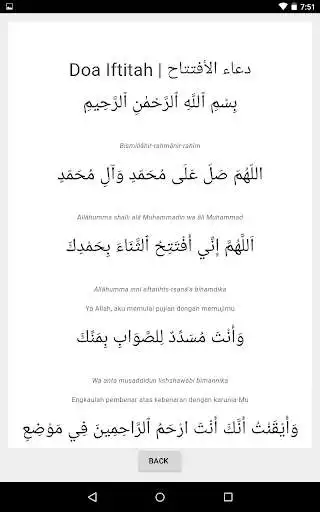 7:51
Doa Iftitah | دعاء الأفتتاح
بِسْمِ ٱللَّهِ ٱلرَّحْمٰنِ ٱلرَّحِيمِ
Bismillâhir-rahmânir-rahîm
اللَّهُمَ صَلَ عَلَى مُحَمَدِ وَآلِ مُحَمَدِ
Allâhumma shalli alâ Muhammadin wa âli Muhammad
اَللَّهُمَّ إِنِّي أَفْتَتِحُ ٱلثَّنَاءَ بِحَمْدِكَ
Allâhumma inni aftahits-tsanâ'a bihamdika
Ya Allah, aku memulai pujian dengan memujimu
وَأَنْتَ مُسَدِّدٌ لِلصَّوَابِ بِمَنِّكَ
Wa anta musaddidun lishshawâbi bimannika
Engkaulah pembenar atas kebenaran dengan karunia-Mu
وَأَيْقَنْتُ أَنَّكَ أَنْتَ ارْحَمُ ٱلرَّاحِمِينَ فِي مَوْضِعِ
BACK